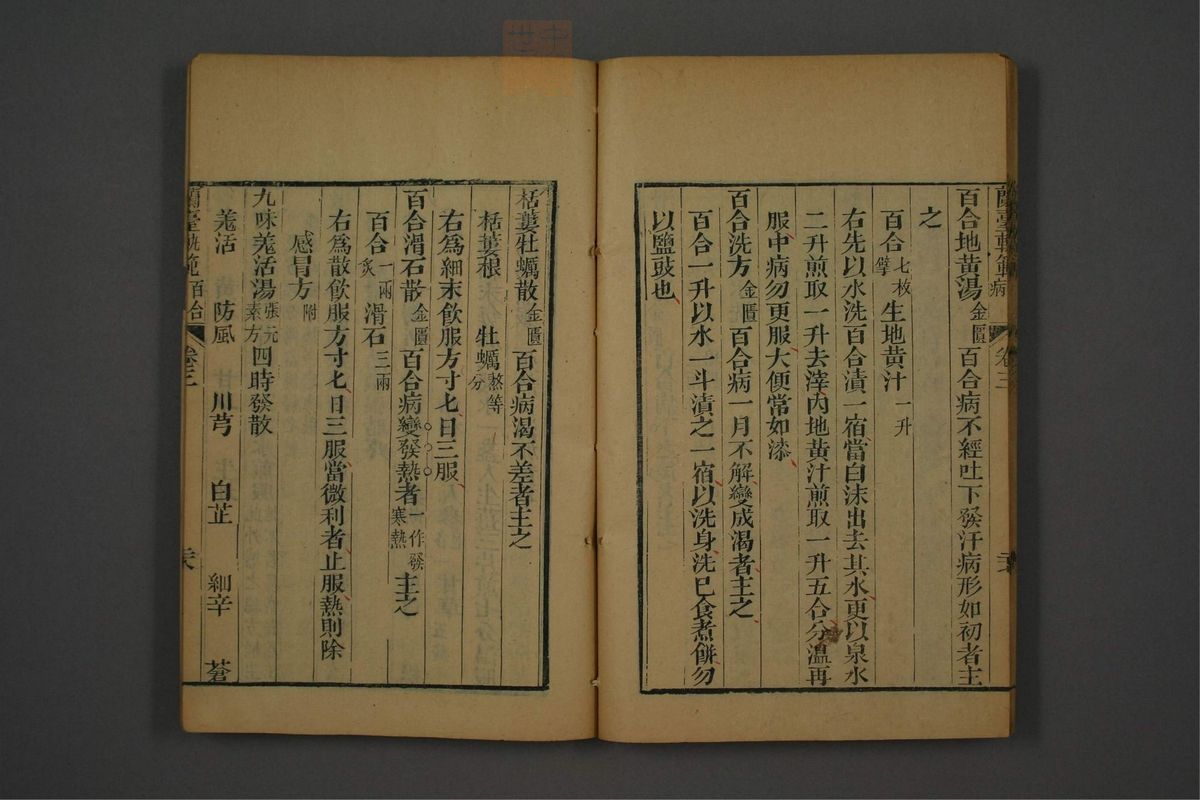 蘭臺軌範 病 卷三
百合地黃湯 金匱 百合病不經吐下發汗病形如初者主
之
百合 七枚擘 生地黃汁 一升
右先以水洗百合漬一宿當白沫出去其水更以泉水
二升煎取一升去滓內地黃汁煎取一升五合分溫再
服中病勿更服大便常如漆
百合洗方 金匱 百合病一月不解變成渴者主之
百合一升以水一斗漬之一宿以洗身洗已食煮餅勿
以鹽豉也
栝蔞牡蠣散 金匱 百合病渴不差者主之
栝蔞根 牡蠣 熬等分
右爲細末飲服方寸匕日三服
百合滑石散 金匱 百合病變發熱者 一作發寒熱 主之
百合 一兩炙 滑石 三兩
右爲散飲服方寸匕日三服當微利者止服熱則除
感冒方 附
九味羗活湯 張元素方 四時發散
羗活 防風 川芎 白芷 細辛 蒼
蘭臺軌範 卷三